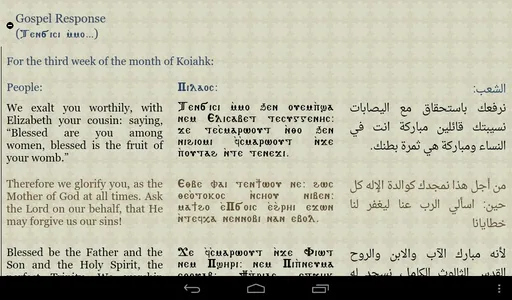 Gospel Response
(Ⲧⲉⲛϭⲓⲥⲓ ⲙ̀ⲙⲟ...)
For the third week of the month of Koiahk:
People:
We exalt you worthily, with
Elizabeth your cousin: saying,
“Blessed are you among
women, blessed is the fruit of
your womb.”
Ⲡⲓⲗⲁⲟⲥ:
Ⲧⲉⲛϭⲓⲥⲓ ⲙ̀ⲙⲟ ϧⲉⲛ ⲟⲩⲉⲙⲡ̀ϣⲁ
ⲛⲉⲙ Ⲉⲗⲓⲥⲁⲃⲉⲧ ⲧⲉⲥⲩⲅⲅⲉⲛⲏⲥ:
ϫⲉ ⲧⲉⲥ̀ⲙⲁⲣⲱⲟⲩⲧ ⲛ̀ⲑⲟ ϧⲉⲛ
ⲛⲓϩⲓⲟⲙⲓ ϥ̀ⲥ̀ⲙⲁⲣⲱⲟⲩⲧ ⲛ̀ϫⲉ
ⲡ̀ⲟⲩⲧⲁϩ ⲛ̀ⲧⲉ ⲧⲉⲛⲉϫⲓ.
الشعب:
نرفعك باستحقاق مع اليصابات
نسيبتك قائلين مباركة انت في
النساء ومباركة هي ثمرة بطنك.
Therefore we glorify you, as the
Mother of God at all times. Ask
the Lord on our behalf, that He
may forgive us our sins!
Ⲉⲑⲃⲉ ⲫⲁⲓ ⲧⲉⲛϯⲱⲟⲩ ⲛⲉ: ϩⲱⲥ
ⲑⲉⲟ̀ⲧⲟⲕⲟⲥ ⲛ̀ⲥⲏⲟⲩ ⲛⲓⲃⲉⲛ:
ⲙⲁϯϩⲟ ⲉ̀Ⲡϭⲟⲓⲥ ⲉ̀ϩ̀ⲣⲏⲓ ⲉϫⲱⲛ
ⲛ̀ⲧⲉϥⲭⲁ ⲛⲉⲛⲛⲟⲃⲓ ⲛⲁⲛ ⲉⲃⲟⲗ.
من أجل هذا نمجدك كوالدة الإله كل
حين: اسألي الرب عنا ليغفر لنا
خطايانا
Blessed be the Father and the
Son and the Holy Spirit, the
perfect Trinity. We worship
Ϫⲉ ϥ̀ⲥ̀ⲙⲁⲣⲱⲟⲩⲧ ⲛ̀ϫⲉ Ⲫⲓⲱⲧ
ⲛⲉⲙ Ⲡϣⲏⲣⲓ: ⲛⲉⲙ Ⲡⲓⲡ̀ⲛⲉⲩⲙⲁ
لأنه مبارك الآب والابن والروح
القدس الثالوث الكامل نسجد له